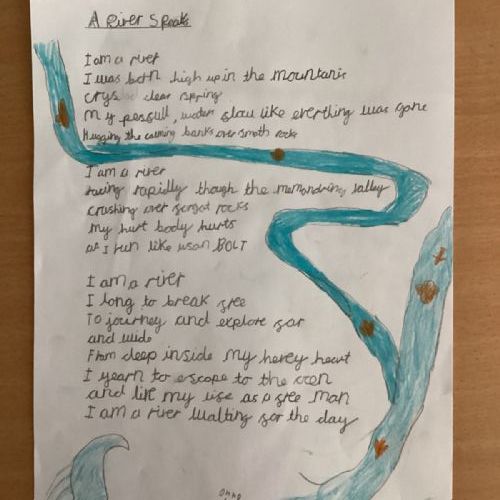 A River Speaks
I am a river
I was both high up in the mountanis
crys clear spring
My pessull, waters slow like everthing was gone
Hugging the calming banks over smoth rocks
I am a river
racing rapidly though the valley
crashing over rocks
My hurt body hurts
as I run like usan BOLT
I am a river
I long to break free
To journey and explore far
and wide
From deep inside my hevey heart
I yearn to escape to the
and live my life as a free man
I am a river waiting for the day